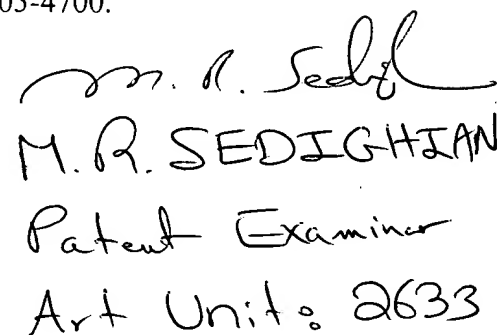 03-4700.
M. R. Sedigh
M. R. SEDIGHIAN
Patent Examiner
Art Unit: 2633